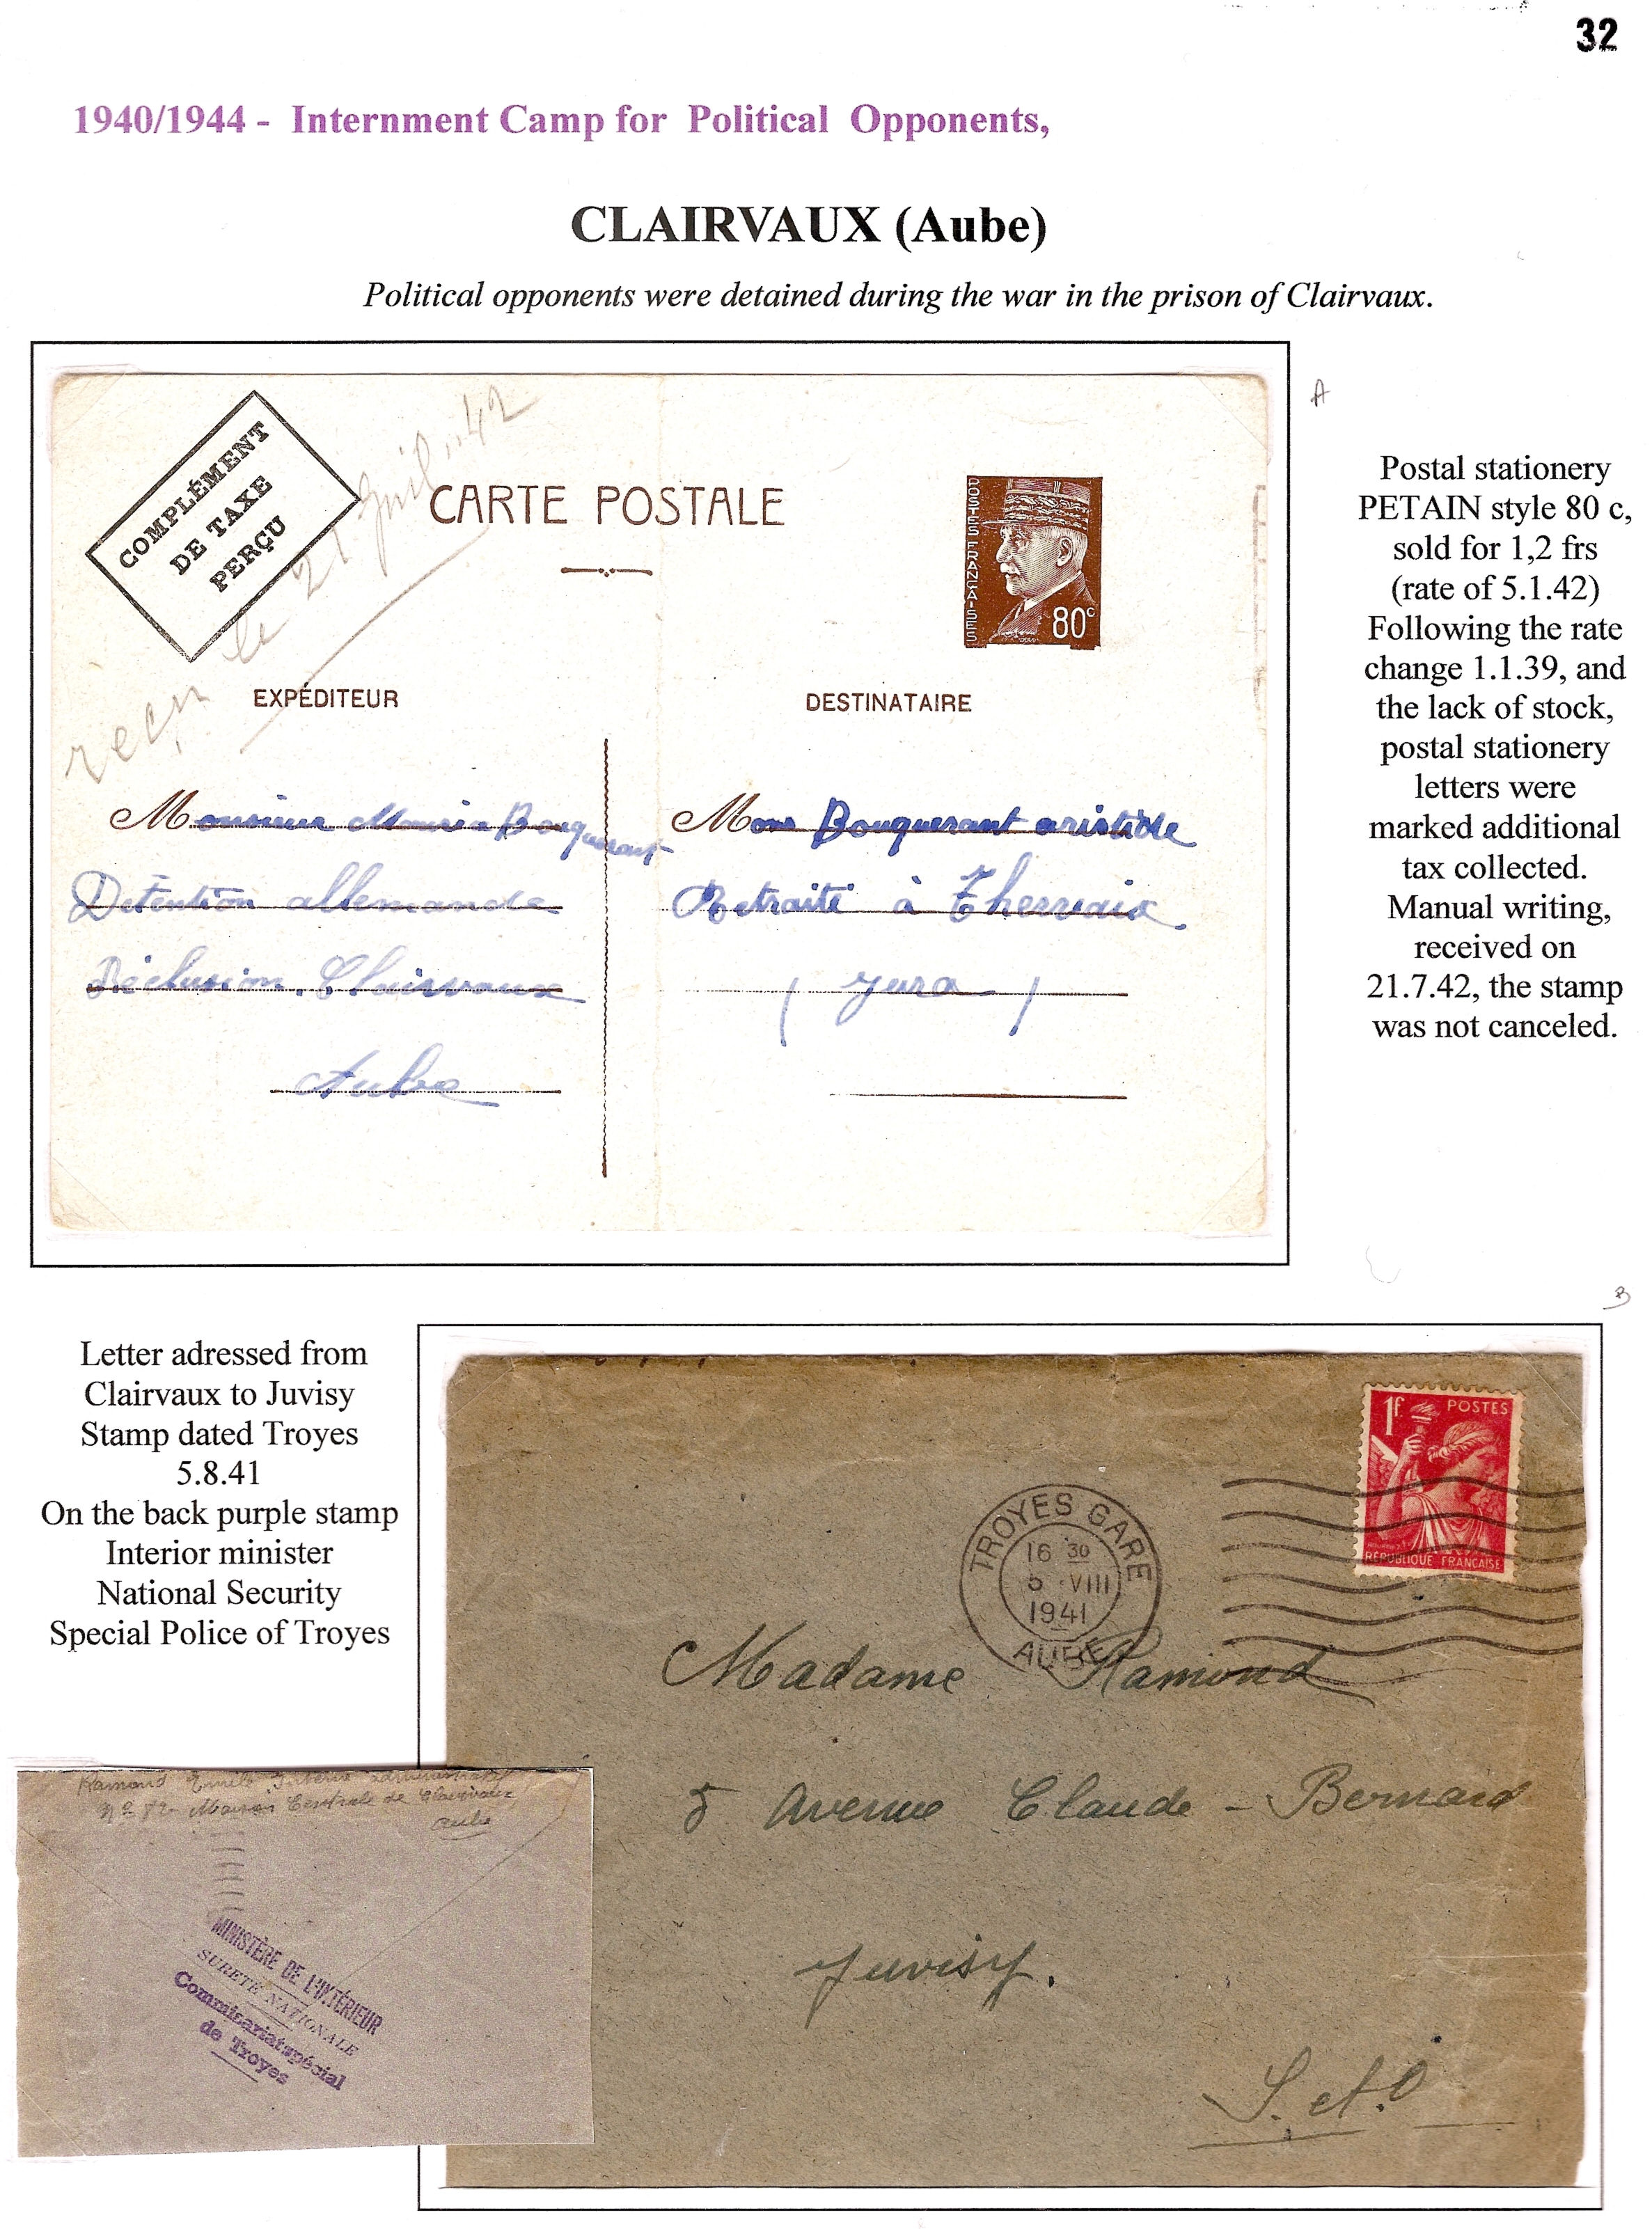 32
1940/1944 - Internment Camp for Political Opponents,
CLAIRVAUX (Aube)
Political opponents were detained during the war in the prison of Clairvaux.
COMPLÉMENT
DE TAXE
PERÇU
reçu le 21 Juil. 42
CARTE POSTALE
POSTES FRANÇAISES
80c
EXPÉDITEUR
Monsieur Bouquerant
Détention allemande
Réclusion. Clairvaux
Aube
DESTINATAIRE
Mons Bouquerant aristide
Retraité à
(Jura)
A
Postal stationery
PETAIN style 80 c,
sold for 1,2 frs
(rate of 5.1.42)
Following the rate
change 1.1.39, and
the lack of stock,
postal stationery
letters were
marked additional
tax collected.
Manual writing,
received on
21.7.42, the stamp
was not canceled.
B
Letter adressed from
Clairvaux to Juvisy
Stamp dated Troyes
5.8.41
On the back purple stamp
Interior minister
National Security
Special Police of Troyes
1f POSTES
RÉPUBLIQUE FRANÇAISE
TROYES GARE
16 30
5 VIII
1941
AUBE
Madame Ramond
5 Avenue Claude - Bernard
Juvisy.
S. et. O
Ramond Emile Interné administratif
Maison Centrale de Clairvaux
Aube
MINISTÈRE DE L'INTÉRIEUR
SURETÉ NATIONALE
Commissariat spécial
de Troyes